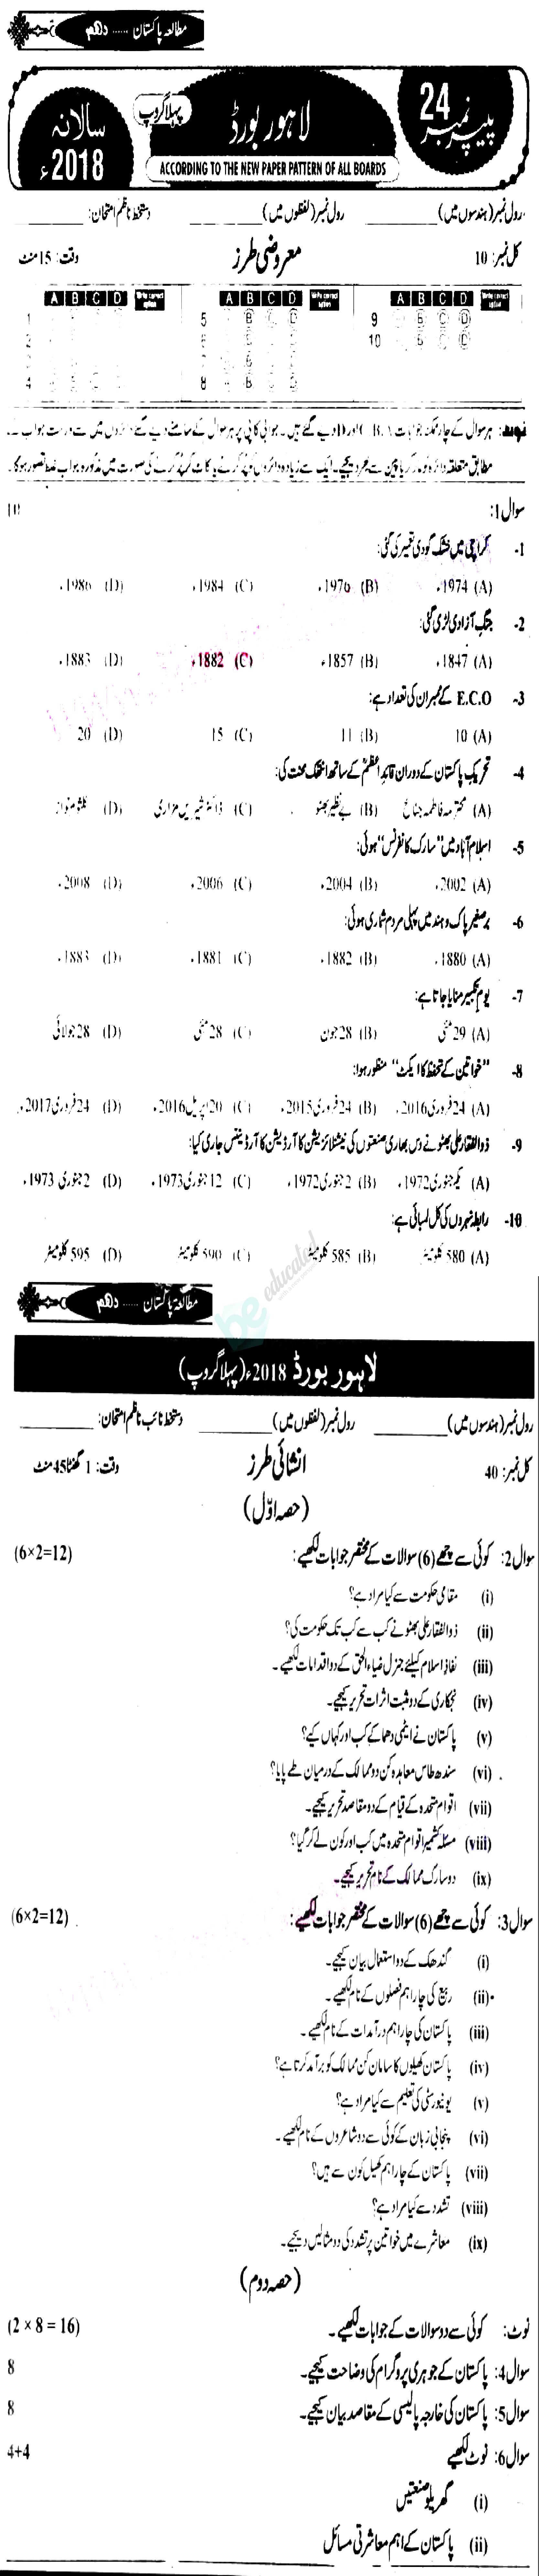 مطالعہ پاکستان ...... دہم
پیپر نمبر 24
لاہور بورڈ
پہلا گروپ
سالانہ 2018ء
ACCORDING TO THE NEW PAPER PATTERN OF ALL BOARDS
رول نمبر (ہندسوں میں) ________ رول نمبر (لفظوں میں) ________ دستخط ناظم امتحان: ________
کل نمبر: 10 معروضی طرز وقت: 15 منٹ
A B C D Write correct option A B C D Write correct option A B C D Write correct option
1 5 B C D 9 B C D
10 B C D
4 8 B C D
نوٹ: ہر سوال کے چار ممکنہ جوابات C، B، A اور D دیے گئے ہیں۔ جوابی کاپی پر ہر سوال کے سامنے دیے گئے دائروں میں سے درست جواب کے
مطابق متعلقہ دائرہ کو مارکر یا پین سے بھر دیجیے۔ ایک سے زیادہ دائروں کو پُر کرنے یا کاٹ کر پُر کرنے کی صورت میں مذکورہ جواب غلط تصور ہوگا۔
سوال 1: 10
1- کراچی میں خشک گودی تعمیر کی گئی:
(A) 1974ء (B) 1976ء (C) 1984ء (D) 1986ء
2- جنگِ آزادی لڑی گئی:
(A) 1847ء (B) 1857ء (C) 1882ء (D) 1883ء
3- E.C.O کے ممبران کی تعداد ہے:
(A) 10 (B) 11 (C) 15 (D) 20
4- تحریکِ پاکستان کے دوران قائدِاعظمؒ کے ساتھ انتھک محنت کی:
(A) محترمہ فاطمہ جناحؒ (B) بے نظیر بھٹو (C) ڈاکٹر شیریں مزاری (D) کلثوم نواز
5- اسلام آباد میں "سارک کانفرنس" ہوئی:
(A) 2002ء (B) 2004ء (C) 2006ء (D) 2008ء
6- برصغیر پاک و ہند میں پہلی مردم شماری ہوئی:
(A) 1880ء (B) 1882ء (C) 1881ء (D) 1883ء
7- یومِ تکبیر منایا جاتا ہے:
(A) 29 مئی (B) 28 جون (C) 28 مئی (D) 28 جولائی
8- "خواتین کے تحفظ کا ایکٹ" منظور ہوا:
(A) 24 فروری 2016ء (B) 24 فروری 2015ء (C) 20 اپریل 2016ء (D) 24 فروری 2017ء
9- ذوالفقار علی بھٹو نے دس بھاری صنعتوں کی نیشنلائزیشن کا آرڈیننس جاری کیا:
(A) یکم جنوری 1972ء (B) 2 جنوری 1972ء (C) 12 جنوری 1973ء (D) 2 جنوری 1973ء
10- رابطہ نہروں کی کل لمبائی ہے:
(A) 580 کلومیٹر (B) 585 کلومیٹر (C) 590 کلومیٹر (D) 595 کلومیٹر
be educated
مطالعہ پاکستان ...... دہم
لاہور بورڈ 2018ء (پہلا گروپ)
رول نمبر (ہندسوں میں) ________ رول نمبر (لفظوں میں) ________ دستخط نائب ناظم امتحان: ________
کل نمبر: 40 انشائی طرز وقت: 1 گھنٹا 45 منٹ
(حصہ اوّل)
سوال 2: کوئی سے چھے (6) سوالات کے مختصر جوابات لکھیے: (6×2=12)
(i) مقامی حکومت سے کیا مراد ہے؟
(ii) ذوالفقار علی بھٹو نے کب سے کب تک حکومت کی؟
(iii) نفاذِ اسلام کیلئے جنرل ضیاء الحق کے دو اقدامات لکھیے۔
(iv) نجکاری کے دو مثبت اثرات تحریر کیجیے۔
(v) پاکستان نے ایٹمی دھماکے کب اور کہاں کیے؟
(vi) سندھ طاس معاہدہ کن دو ممالک کے درمیان طے پایا؟
(vii) اقوامِ متحدہ کے قیام کے دو مقاصد تحریر کیجیے۔
(viii) مسئلہ کشمیر اقوامِ متحدہ میں کب اور کون لے کر گیا؟
(ix) دو سارک ممالک کے نام تحریر کیجیے۔
سوال 3: کوئی سے چھے (6) سوالات کے مختصر جوابات لکھیے: (6×2=12)
(i) گندھک کے دو استعمال بیان کیجیے۔
(ii) ربیع کی چار اہم فصلوں کے نام لکھیے۔
(iii) پاکستان کی چار اہم درآمدات کے نام لکھیے۔
(iv) پاکستان کھیلوں کا سامان کن ممالک کو برآمد کرتا ہے؟
(v) یونیورسٹی کی تعلیم سے کیا مراد ہے؟
(vi) پنجابی زبان کے کوئی سے دو شاعروں کے نام لکھیے۔
(vii) پاکستان کے چار اہم کھیل کون سے ہیں؟
(viii) تشدد سے کیا مراد ہے؟
(ix) معاشرے میں خواتین پر تشدد کی دو مثالیں دیجیے۔
(حصہ دوم)
نوٹ: کوئی سے دو سوالات کے جوابات لکھیے۔ (2 × 8 = 16)
سوال 4: پاکستان کے جوہری پروگرام کی وضاحت کیجیے۔ 8
سوال 5: پاکستان کی خارجہ پالیسی کے مقاصد بیان کیجیے۔ 8
سوال 6: نوٹ لکھیے 4+4
(i) گھریلو صنعتیں
(ii) پاکستان کے اہم معاشرتی مسائل